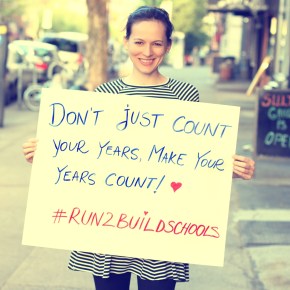 DON'T JUST COUNT
YOUR YEARS, MAKE YOUR
YEARS COUNT! ♥
#RUN2BUILDSCHOOLS
IS
OPEN